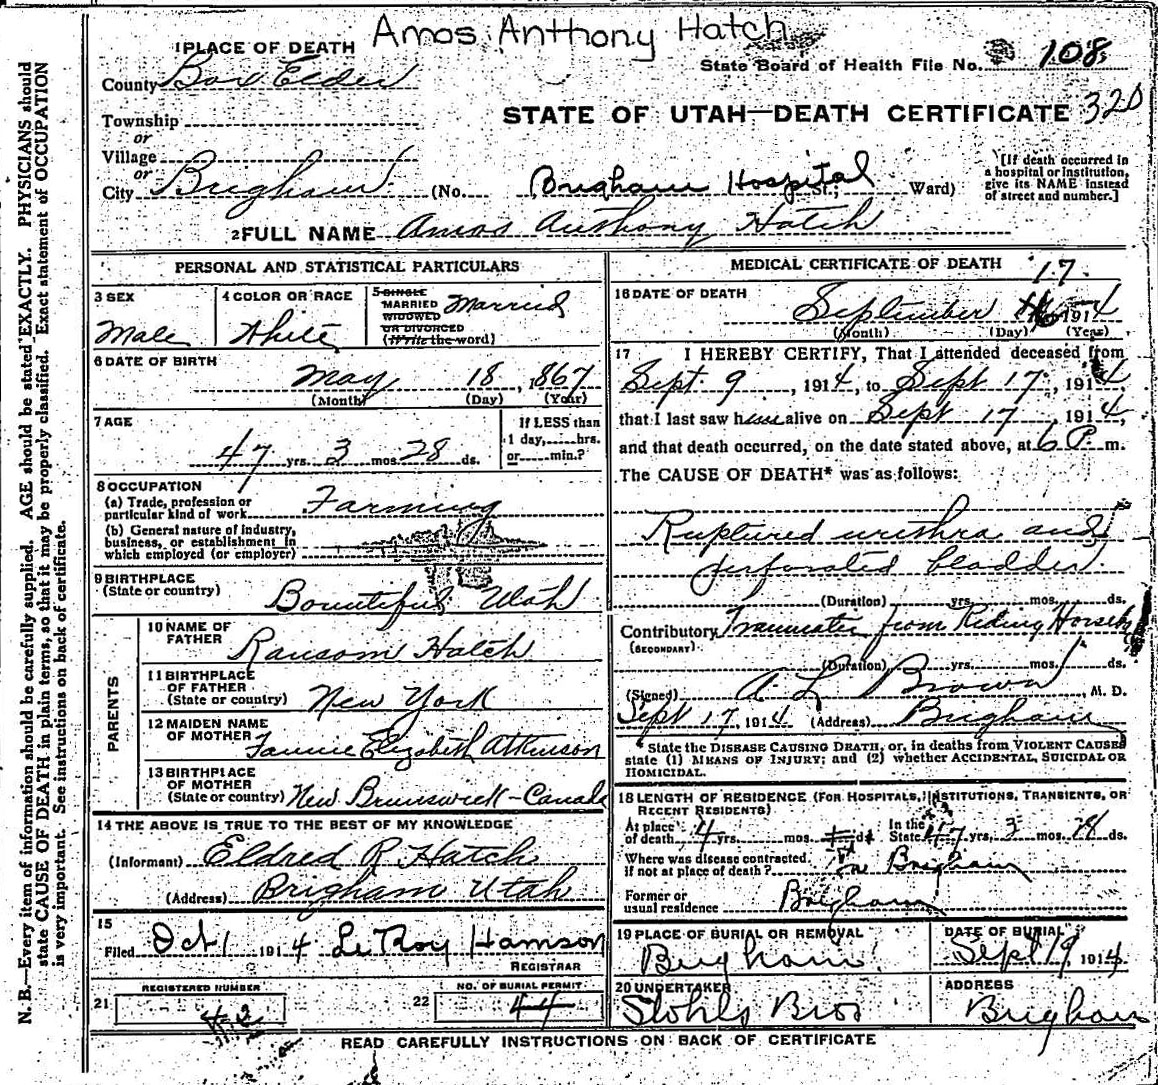 Amos Anthony Hatch
1 PLACE OF DEATH
State Board of Health File No. 108
County Box Elder
STATE OF UTAH—DEATH CERTIFICATE 320
Township
or
Village
or
City Brigham (No. Brigham Hospital St.; Ward)
[If death occurred in a hospital or institution, give its NAME instead of street and number.]
2 FULL NAME Amos Anthony Hatch
PERSONAL AND STATISTICAL PARTICULARS
3 SEX
Male
4 COLOR OR RACE
White
5 SINGLE
MARRIED
WIDOWED
OR DIVORCED
(Write the word)
Married
6 DATE OF BIRTH
May 18, 1867
(Month) (Day) (Year)
7 AGE
47 yrs. 3 mos. 28 ds.
If LESS than
1 day, hrs.
or min.?
8 OCCUPATION
(a) Trade, profession or
particular kind of work Farming
(b) General nature of industry,
business, or establishment in
which employed (or employer)
9 BIRTHPLACE
(State or country)
Bountiful Utah
PARENTS
10 NAME OF
FATHER
Ransom Hatch
11 BIRTHPLACE
OF FATHER
(State or country) New York
12 MAIDEN NAME
OF MOTHER Fannie Elizabeth Atkinson
13 BIRTHPLACE
OF MOTHER
(State or country) New Brunswick-Canada
14 THE ABOVE IS TRUE TO THE BEST OF MY KNOWLEDGE
(Informant) Eldred R Hatch
(Address) Brigham Utah
15
Filed Oct 1 1914 LeRoy Hamson
REGISTRAR
21 REGISTERED NUMBER
42
22 NO. OF BURIAL PERMIT
44
MEDICAL CERTIFICATE OF DEATH
17
16 DATE OF DEATH
September 1914
(Month) (Day) (Year)
17 I HEREBY CERTIFY, That I attended deceased from
Sept. 9, 1914, to Sept 17, 1914,
that I last saw him alive on Sept 17 1914,
and that death occurred, on the date stated above, at 6 P. m.
The CAUSE OF DEATH* was as follows:
Ruptured urethra and
perforated bladder.
(Duration) yrs. mos. ds.
Contributory from Riding Horse
(SECONDARY)
(Duration) yrs. mos. ds.
(Signed) A L Brown, M. D.
Sept 17, 1914 (Address) Brigham
*State the DISEASE CAUSING DEATH, or, in deaths from VIOLENT CAUSES
state (1) MEANS OF INJURY; and (2) whether ACCIDENTAL, SUICIDAL OR
HOMICIDAL.
18 LENGTH OF RESIDENCE (FOR HOSPITALS, INSTITUTIONS, TRANSIENTS, OR
RECENT RESIDENTS)
At place of death 4 yrs. mos. ds. In the State 47 yrs. 3 mos. 28 ds.
Where was disease contracted,
if not at place of death? in Brigham
Former or
usual residence Brigham
19 PLACE OF BURIAL OR REMOVAL
Brigham
DATE OF BURIAL
Sept 19 1914
20 UNDERTAKER
Stohls Bros
ADDRESS
Brigham
READ CAREFULLY INSTRUCTIONS ON BACK OF CERTIFICATE
N. B.—Every item of information should be carefully supplied. AGE should be stated EXACTLY. PHYSICIANS should
state CAUSE OF DEATH in plain terms, so that it may be properly classified. Exact statement of OCCUPATION
is very important. See instructions on back of certificate.